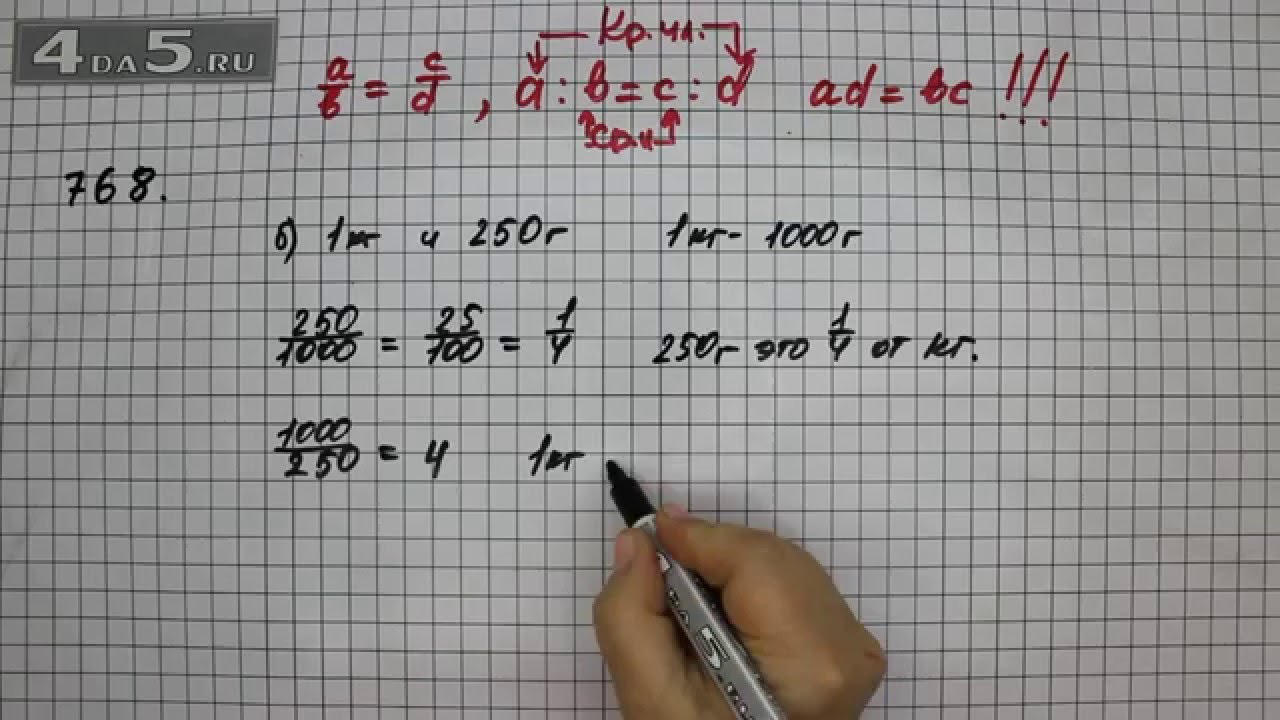 4DA5.RU
Кр.чл.
a/b = c/d , a : b = c : d ad = bc !!!
Ср.ч.
768.
б) 1кг и 250г 1кг - 1000г
250/1000 = 25/100 = 1/4 250г это 1/4 от кг.
1000/250 = 4 1кг
DA 5.RU